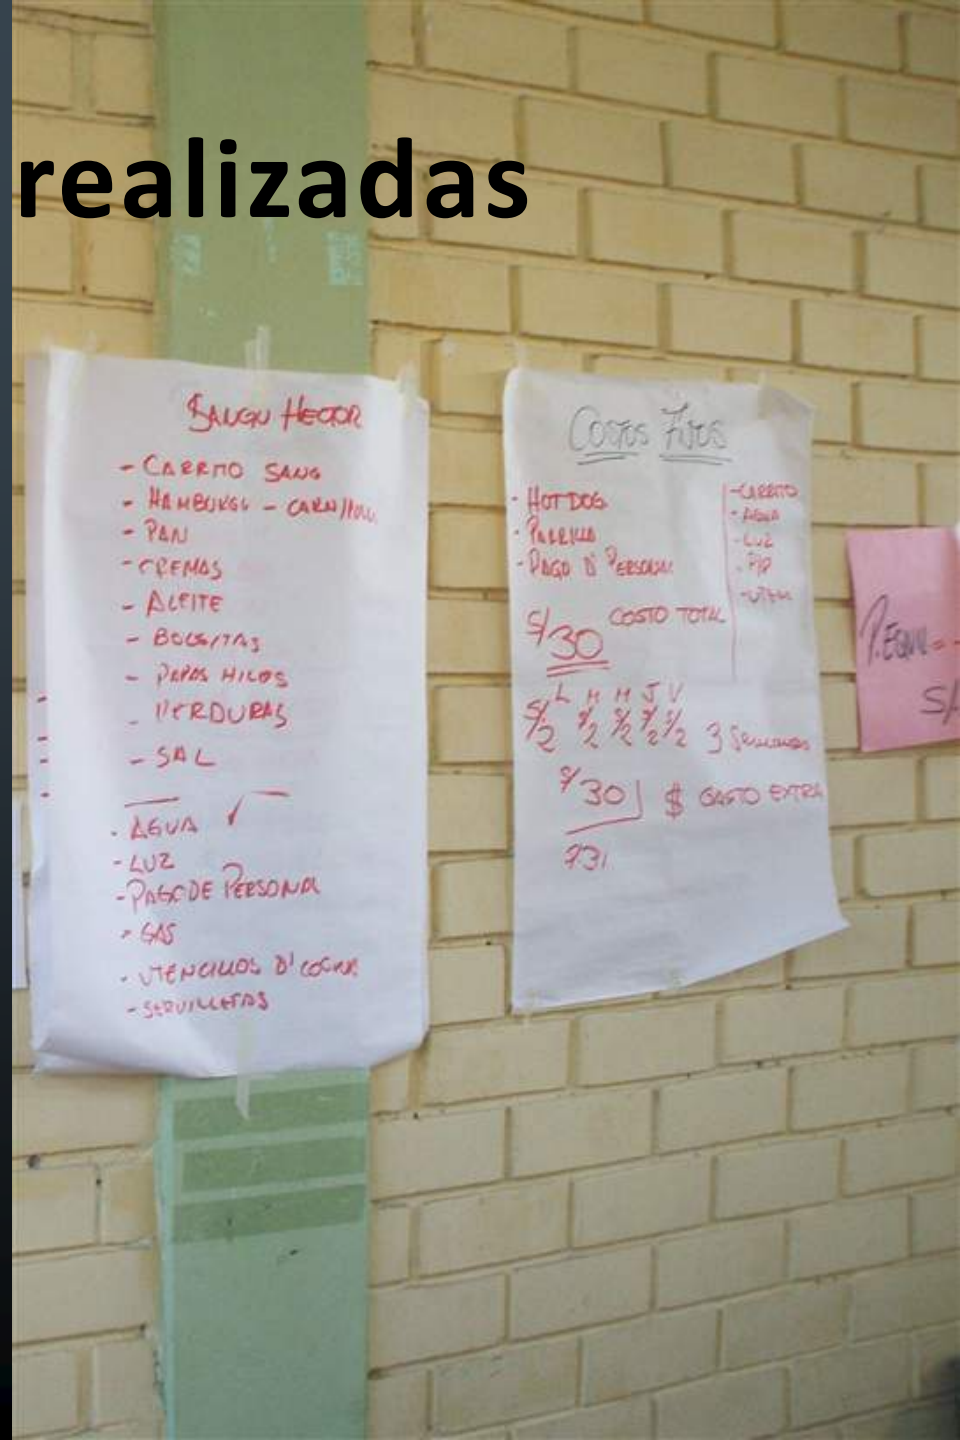 realizadas
SANGU HECTOR
- CARRITO SANG
- HAMBURGU - CARN/POLL
- PAN
- CREMAS
- ACEITE
- BOLSITAS
- PAPAS HILOS
- VERDURAS
- SAL
- AGUA ✓
- LUZ
- PAGO DE PERSONAL
- GAS
- UTENCILIOS D' COCINA
- SERVILLETAS
COSTOS FIJOS
- HOT DOG
- PARRILLA
- PAGO D' PERSONAL
- CARRITO
- AGUA
- LUZ
- P/P
S/30 COSTO TOTAL
L M M J V
S/2 S/2 S/2 S/2 S/2 3 Semanas
S/30 $ GASTO EXTRA
P. EQUI = -
S/